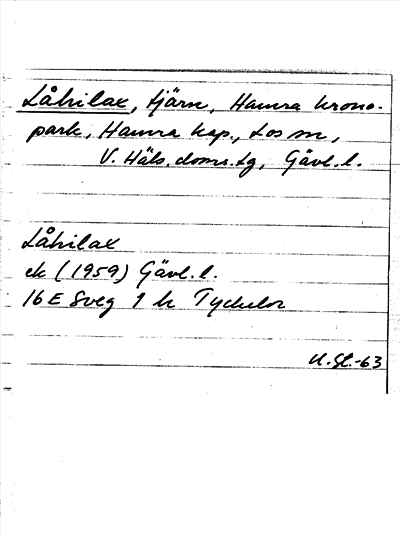 Låhilax, tjärn, Hamra krono-
park, Hamra kap., Los sn,
V. Häls. doms.tg, Gävl. l.
Låhilax
ek (1959) Gävl. l.
16 E Sveg 1 h
-63